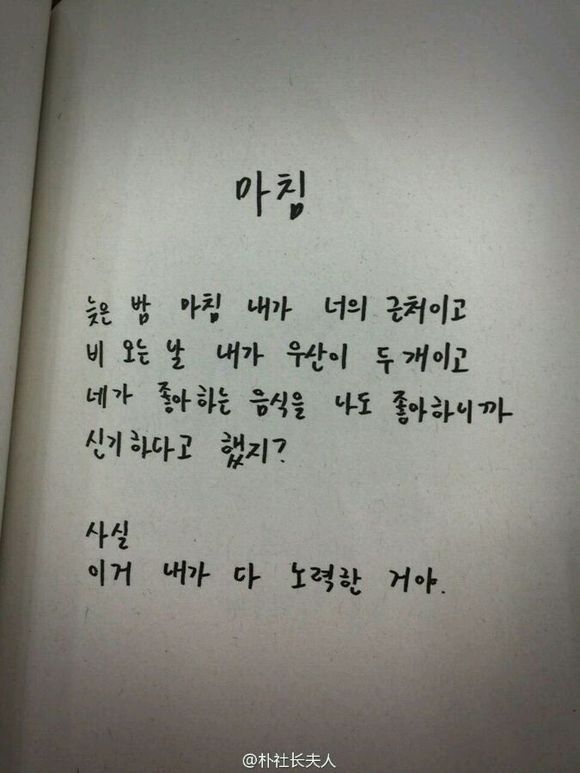 마침
늦은 밤 마침 내가 너의 근처이고
비 오는 날 내가 우산이 두 개이고
네가 좋아하는 음식을 나도 좋아하니까
신기하다고 했지?
사실
이거 내가 다 노력한 거야.
@朴社长夫人